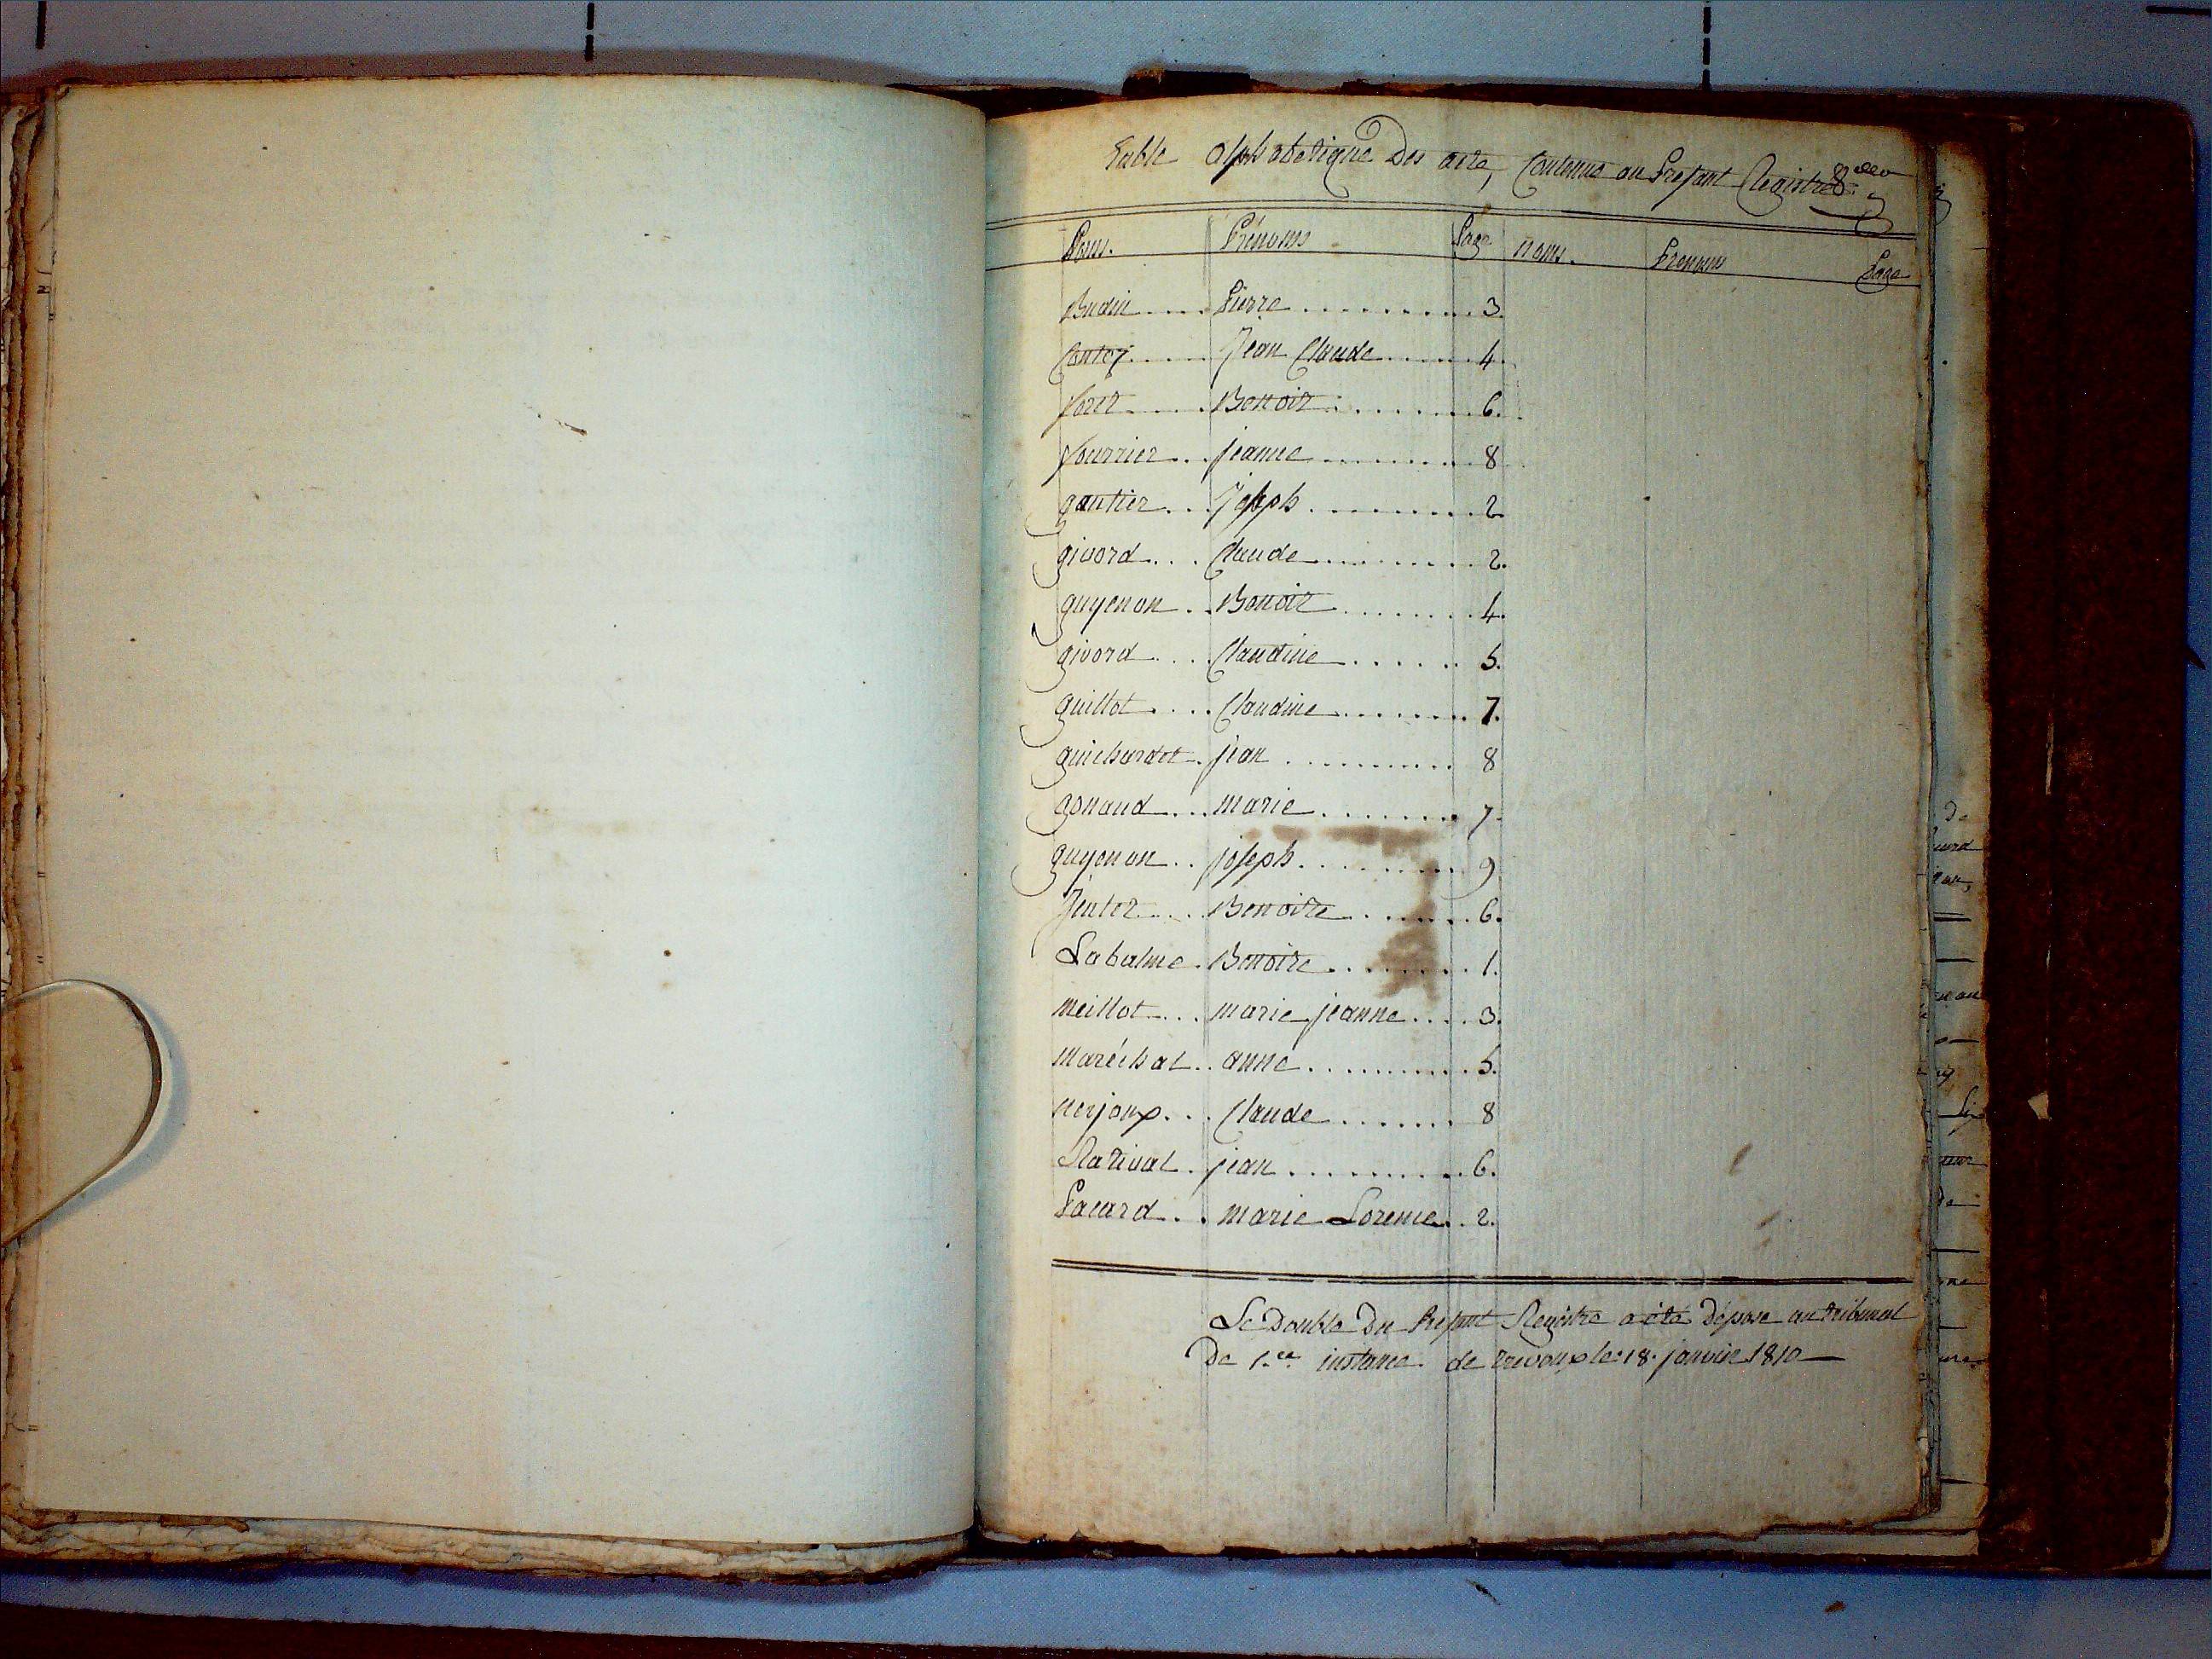 Table alphabetique Des acte, Contenus au présent Registre
Noms. Prénoms Page noms. Prenoms Page
Budin .... Pierre ......... 3.
Contet ..... Jean Claude ...... 4.
foret ..... Benoit ....... 6.
fourrier .. jeanne ........ 8
gautier ... joseph ......... 2
givord ... Claude ......... 2.
guyenon .. Benoit ....... 4.
givord .... Claudine ...... 5.
guillot .... Claudine ....... 7.
guichardet . jean .......... 8
gonaud ... marie ....... 7.
guyenon .. joseph ........ 9
Benoite ...... 6.
Labalme . Benoite ....... 1.
meillot ... marie jeanne .... 3.
maréchal .. anne ......... 5.
nerjoux ... Claude ....... 8
Rativat . jean ........ 6.
Pacard .. marie Lorence .. 2.
Le Double Du present Registre a été déposé au tribunal
De 1.ere instance de trevoux le 18. janvier 1810